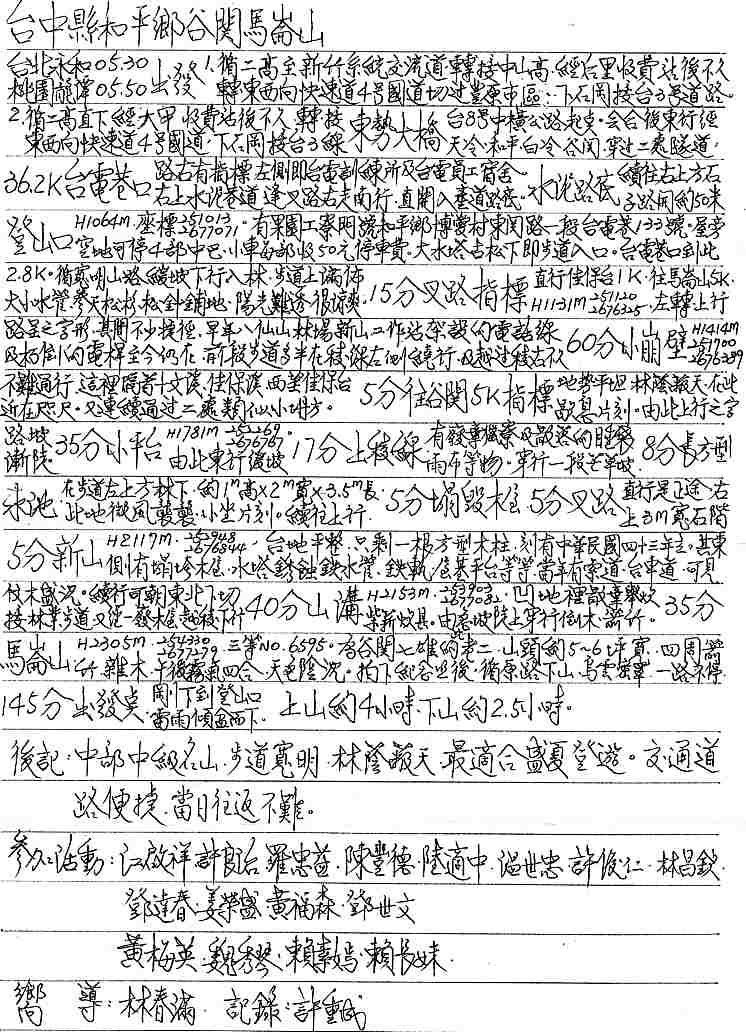 台中縣和平鄉谷関馬崙山
台北永和05.30 桃園龍潭05.50 出發 1.循二高至新竹系統交流道轉接中山高.經后里收費站後不久轉東西向快速道4号國道切过豊原市區:下石岡接台3号道路.
2.循二高直下經大甲收費站後不久轉接東西向快速道4号國道.下石岡接台3線 東勢大橋 台8号中横公路起点.会合後東行經天冷.和平白冷谷関.穿过二處隧道,
36.2K台電巷口 路右有指標左側即台電訓練所及台電員工宿舍.右上水泥巷道逢叉路右走南行.直開入產道路底. 水泥路底 續往右上方石子路開約50米
登山口 H1064m.座標251013 2677071.有果園工寮門號和平鄉博愛村東関路一段台電巷133號.屋旁空地可停4部中巴.小車每部收50元停車費.大水塔古松下即步道入口.台電巷口到此
2.8K.循寬明山路緩坡下行入林.步道上滿佈大小水管.參天松杉.松針鋪地.陽光難透很涼爽.15分叉路指標 直行佳保台1K.往馬崙山5K. H1131M 251120 2676325.左轉上行
路呈之字形.其間不少捷徑.早年八仙山林場新山工作站架設的電話線及朽倒的電桿至今仍在.前段步道多半在稜線左側繞行.及越过稜右不久 60分小崩壁 H1414M 251700 2676389
不難通行.這裡隔着十文溪.佳保溪西望佳保台近在咫尺.又連續通过二處類似小坍方. 5分往谷関5K指標 地勢平坦.林蔭蔽天.在此歇息片刻.由此上行之字
路坡漸陡.35分小平台 H1781M 252269 2676767 由此東行緩坡 17分上稜線 有發寮獵寮及散落的睡袋雨布等物.穿行一段芒草坡. 8分長方型
水池 在步道左上方林下.約1m高x2m寬x3.5m長.此地微風襲襲.小坐片刻.續往上行. 5分塌毀木屋.5分叉路 直行是正途.右上3M寬石階
5分新山 H2117M. 2676844.台地平整.只剩一根方型木柱.刻有中華民國四十三年立.其東側有塌垮木屋.水塔銹蝕鉄水管.鉄軌.屋基平台等等當年有索道.台車道.可見
伐木盛況.續行可朝東北下切接林業步道又從一發木屋越稜下行 40分山溝 H2153M. 253903 2677082.凹地裡散棄炊柴新炊具.由急坡陡上穿行倒木.箭竹. 35分
馬崙山 H2305M 254330 2677279 三等NO.6595.為谷関七雄的老二.山頭約5~6坪寬.四周箭竹.雜木.午後霧氣四合.天色陰沉.拍下紀念照後.循原路下山.烏雲籠罩.一路不停
145分出發点.剛下到登山口雷雨傾盆而下. 上山約4小時.下山約2.5小時.
後記:中部中級名山.步道寬明.林蔭蔽天.最適合盛夏登遊。交通道
路便捷.當日往返不難。
參加活動:江啟祥.許良台.羅忠益.陳豐德.陸適中.温世忠.許俊仁.林昌欽.
鄧達春.姜榮盛.黃福森.鄧世文
黃梅英.魏秀琴.賴素嫣.賴長妹.
嚮　導:林春滿.　記錄:許重成